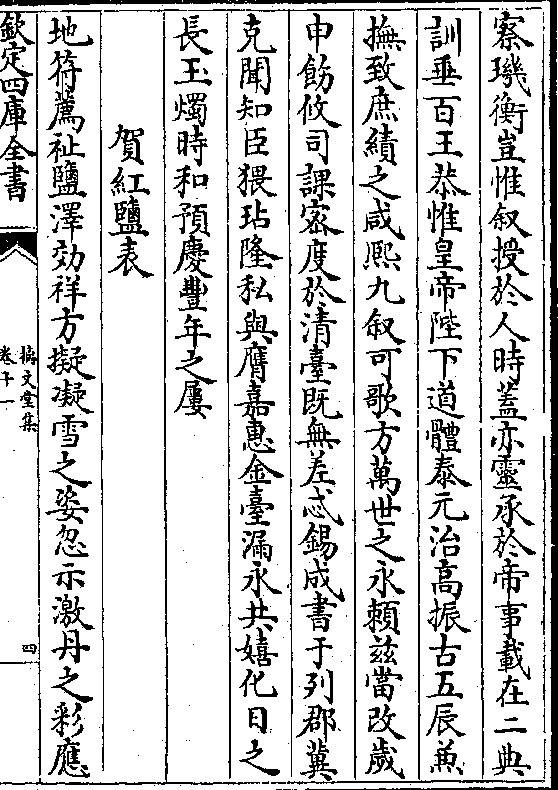 察璣衡豈惟叙授於人時蓋亦靈承於帝事載在二典
訓垂百王恭惟皇帝陛下道體泰元治高振古五辰兼
撫致庶績之咸熈九叙可歌方萬世之永賴兹當改歲
申飭攸司課宻度於清臺既無差忒錫成書于列郡冀
克聞知臣猥玷隆私與膺嘉惠金臺漏永共嬉化日之
長玉燭時和預慶豐年之屢
賀紅鹽表
地符薦祉鹽澤効祥方擬凝雪之姿忽示激丹之彩應
欽定四庫全書
摛文堂集
卷十一
四